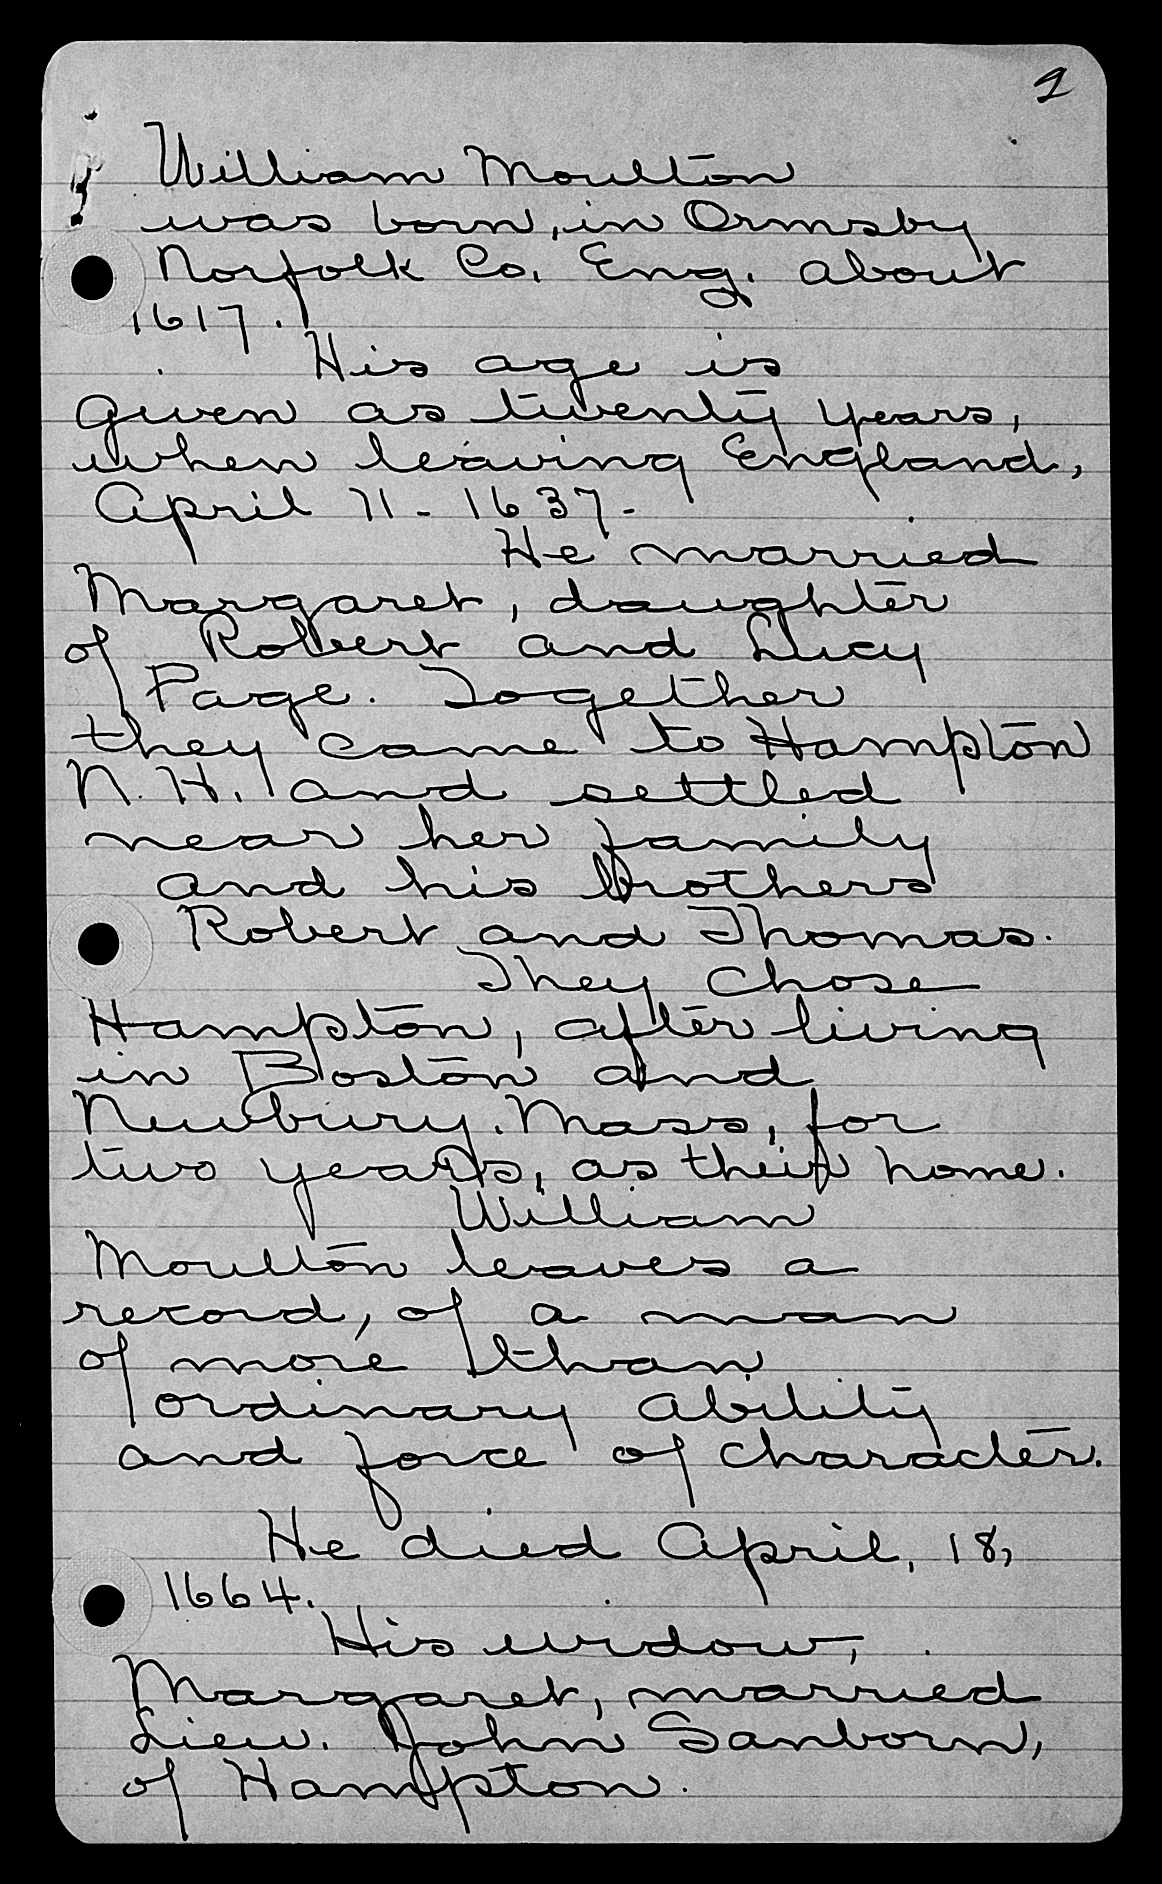 1
William Moulton
was born, in Ormsby
Norfolk Co. Eng. about
1617.
His age is
given as twenty years,
when leaving England,
April 11 - 1637 -
He married
Margaret, daughter
of Robert and Lucy
Page. Together
they came to Hampton
N. H. and settled
near her family
and his brothers
Robert and Thomas.
They chose
Hampton, after living
in Boston and
Newbury. Mass, for
two years, as their home.
William
Moulton leaves a
record, of a man
of more than
ordinary ability
and force of character.
He died April, 18,
1664.
His widow,
Margaret, married
Lieu. John Sanborn,
of Hampton.